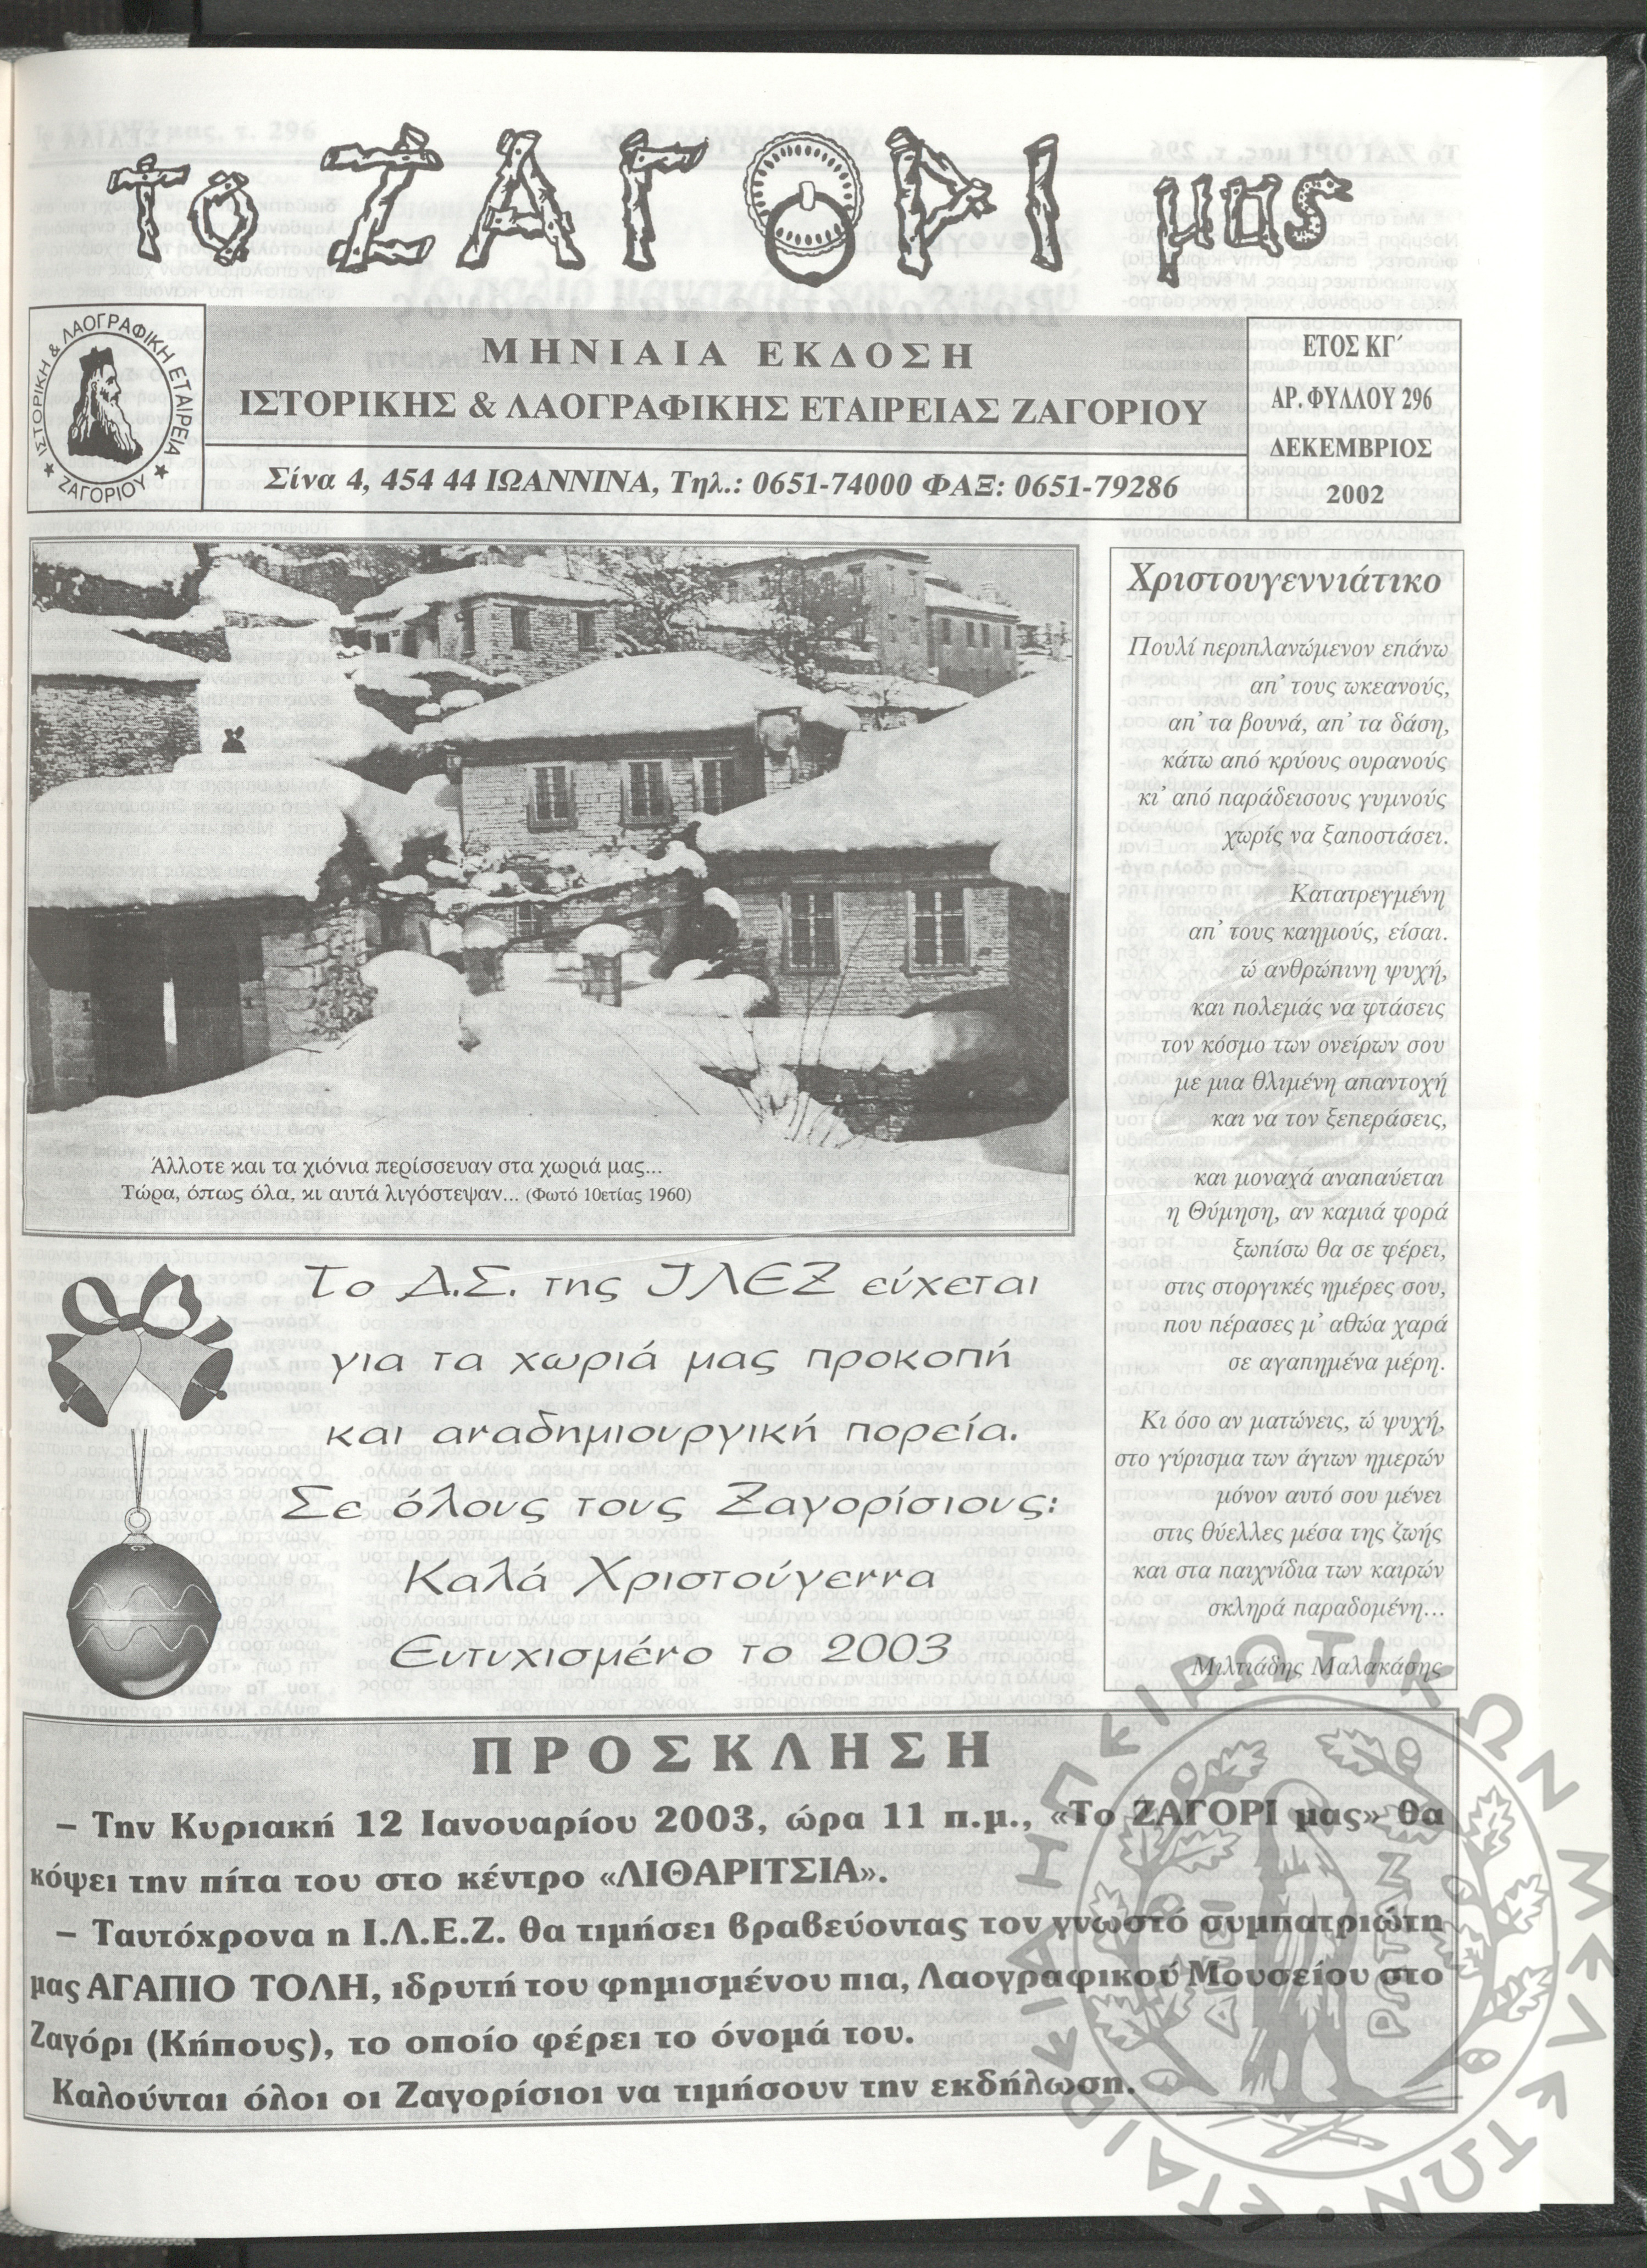 Το ΖΑΓΟΡΙ μας
ΙΣΤΟΡΙΚΗ & ΛΑΟΓΡΑΦΙΚΗ ΕΤΑΙΡΕΙΑ
ΖΑΓΟΡΙΟΥ
ΜΗΝΙΑΙΑ ΕΚΔΟΣΗ
ΙΣΤΟΡΙΚΗΣ & ΛΑΟΓΡΑΦΙΚΗΣ ΕΤΑΙΡΕΙΑΣ ΖΑΓΟΡΙΟΥ
Σίνα 4, 454 44 ΙΩΑΝΝΙΝΑ, Τηλ.: 0651-74000 ΦΑΞ: 0651-79286
ΕΤΟΣ ΚΓ΄
ΑΡ. ΦΥΛΛΟΥ 296
ΔΕΚΕΜΒΡΙΟΣ
2002
Άλλοτε και τα χιόνια περίσσευαν στα χωριά μας...
Τώρα, όπως όλα, κι αυτά λιγόστεψαν... (Φωτό 10ετίας 1960)
Χριστουγεννιάτικο
Πουλί περιπλανώμενον επάνω
απ' τους ωκεανούς,
απ' τα βουνά, απ' τα δάση,
κάτω από κρύους ουρανούς
κι' από παράδεισους γυμνούς
χωρίς να ξαποστάσει.
Κατατρεγμένη
απ' τους καημούς, είσαι.
ώ ανθρώπινη ψυχή,
και πολεμάς να φτάσεις
τον κόσμο των ονείρων σου
με μια θλιμένη απαντοχή
και να τον ξεπεράσεις,
και μοναχά αναπαύεται
η Θύμηση, αν καμιά φορά
ξωπίσω θα σε φέρει,
στις στοργικές ημέρες σου,
που πέρασες μ' αθώα χαρά
σε αγαπημένα μέρη.
Κι όσο αν ματώνεις, ώ ψυχή,
στο γύρισμα των άγιων ημερών
μόνον αυτό σου μένει
στις θύελλες μέσα της ζωής
και στα παιχνίδια των καιρών
σκληρά παραδομένη...
Μιλτιάδης Μαλακάσης
Το Δ.Σ. της ΙΛΕΖ εύχεται
για τα χωριά μας προκοπή
και αναδημιουργική πορεία.
Σε όλους τους Ζαγορίσιους:
Καλά Χριστούγεννα
Ευτυχισμένο το 2003
ΠΡΟΣΚΛΗΣΗ
– Την Κυριακή 12 Ιανουαρίου 2003, ώρα 11 π.μ., «Το ΖΑΓΟΡΙ μας» θα
κόψει την πίτα του στο κέντρο «ΛΙΘΑΡΙΤΣΙΑ».
– Ταυτόχρονα η Ι.Λ.Ε.Ζ. θα τιμήσει βραβεύοντας τον γνωστό συμπατριώτη
μας ΑΓΑΠΙΟ ΤΟΛΗ, ιδρυτή του φημισμένου πια, Λαογραφικού Μουσείου στο
Ζαγόρι (Κήπους), το οποίο φέρει το όνομά του.
Καλούνται όλοι οι Ζαγορίσιοι να τιμήσουν την εκδήλωση.
ΕΤΑΙΡΕΙΑ ΗΠΕΙΡΩΤΙΚΩΝ ΜΕΛΕΤΩΝ
ΑΠΕΙ
ΡΩΤΑΝ